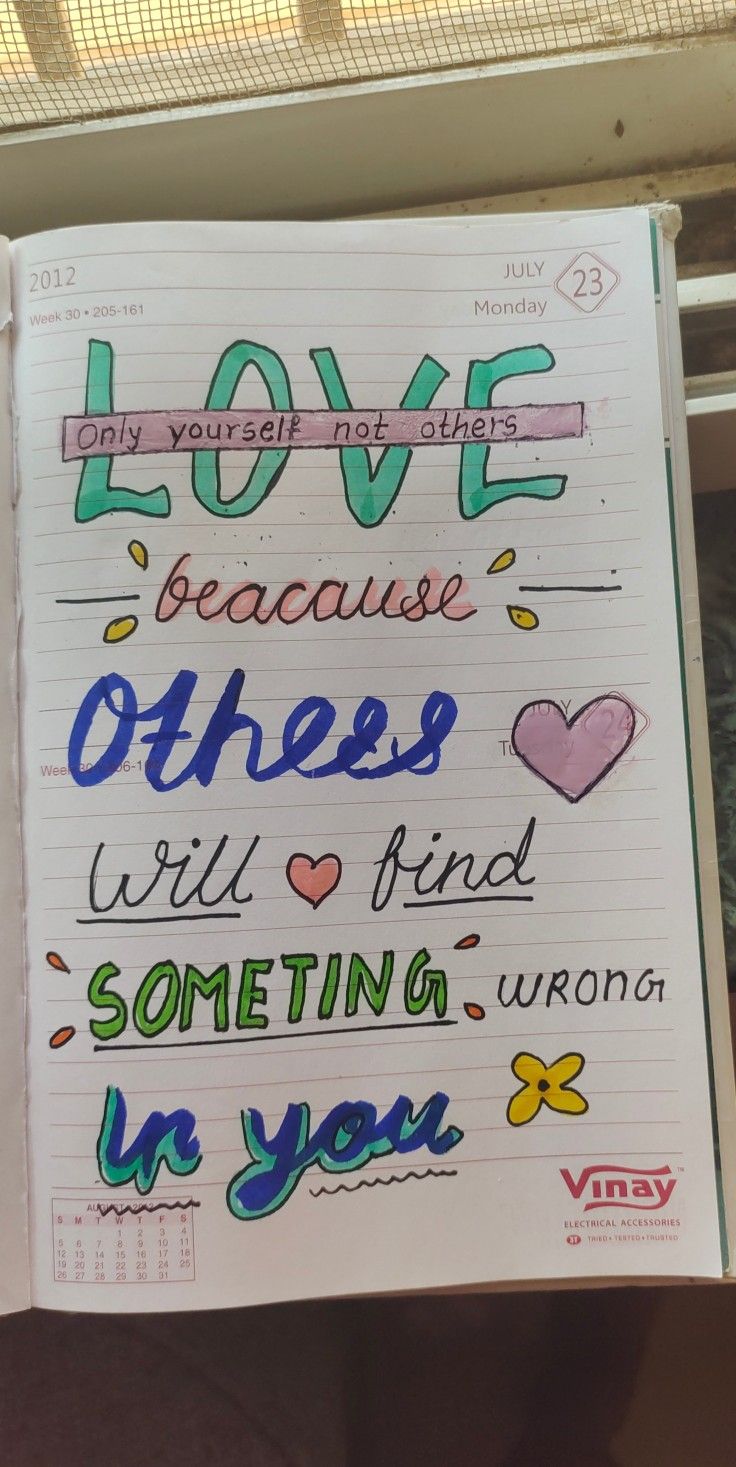 2012
JULY
23
Week 30 • 205-161
Monday
LOVE
Only yourself not others
beacause
Others
JULY
24
Will find
SOMETING WRONG
In you
Vinay
™
ELECTRICAL ACCESSORIES
3T TRIED • TESTED • TRUSTED
AUGUST 2012
S M T W T F S
1 2 3 4
5 6 7 8 9 10 11
12 13 14 15 16 17 18
19 20 21 22 23 24 25
26 27 28 29 30 31